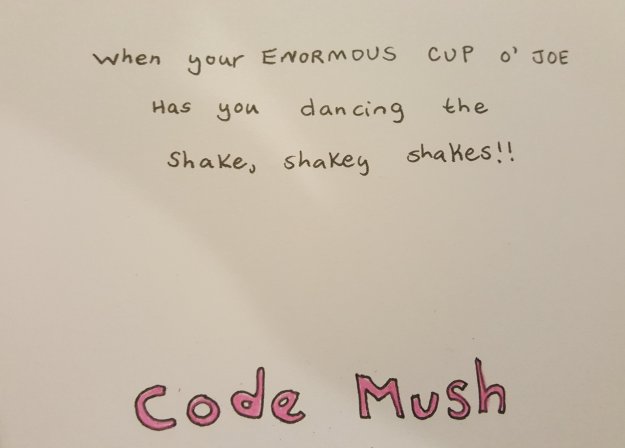 When your ENORMOUS CUP O' JOE
Has you dancing the
Shake, shakey shakes!!
Code Mush